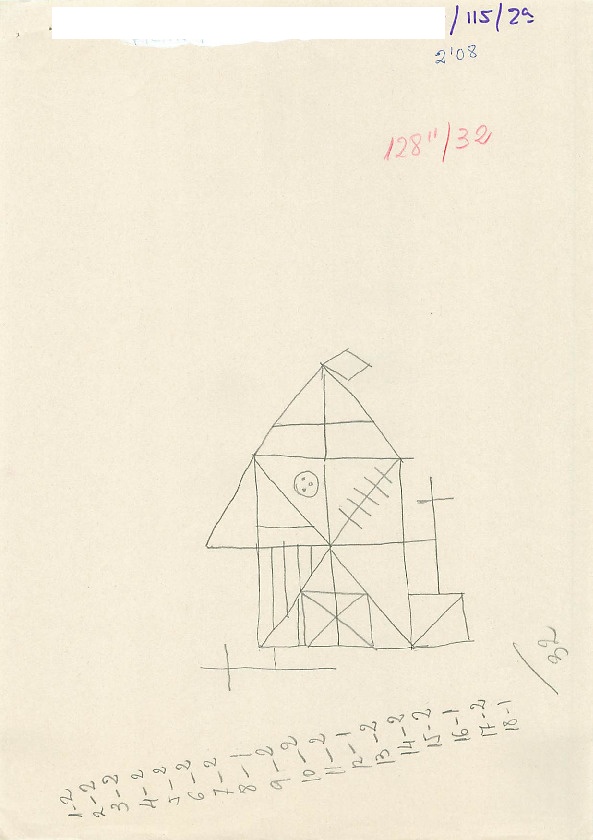 / 115/29
2'08
128"/32
/32
1-2
2-2
3-2
4-2
5-2
6-2
7-2
8-1
9-2
10-2
11-2
12-1
13-2
14-2
15-2
16-1
17-2
18-1